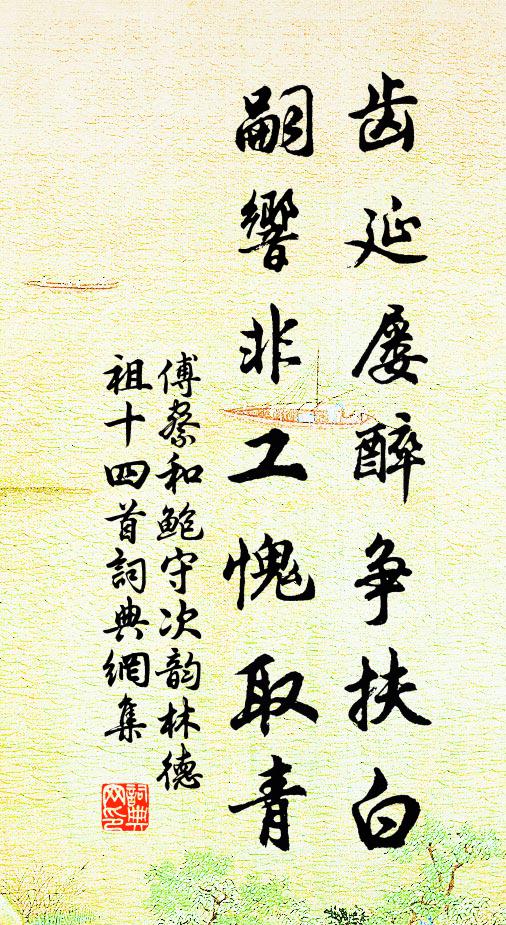 齿延屡醉争扶白
嗣響非工愧取青
傅察和鮑守次韵林德
祖十四首詞典網集
詞典
网印